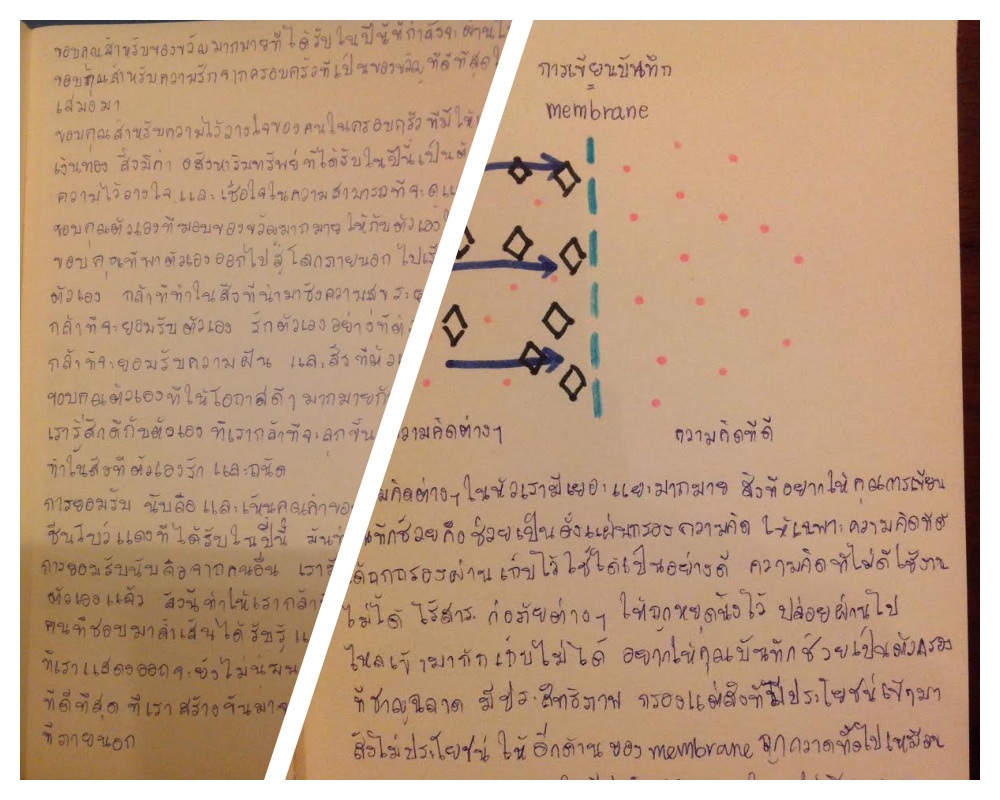 ขอบคุณสำหรับของขวัญมากมายที่ได้รับในปีนี้ที่กำลังจะผ่านไป
ขอบคุณสำหรับความรักจากครอบครัวที่เป็นของขวัญที่ดีที่สุด
เสมอมา
ขอบคุณสำหรับความไว้วางใจของคนในครอบครัวที่มีให้
เงินทอง สิ่งมีค่า อสังหาริมทรัพย์ที่ได้รับในปีนี้เป็น
ความไว้วางใจ และเชื่อใจในความสามารถที่จะดูแ
ขอบคุณตัวเองที่มอบของขวัญมากมายให้กับตัวเอง
ขอบคุณที่พาตัวเองออกไปสู่โลกภายนอก ไป
ตัวเอง กล้าที่ทำในสิ่งที่นำมาซึ่งความสุข
กล้าที่จะยอมรับตัวเอง รักตัวเองอย่างที่
กล้าที่จะยอมรับความฝัน และสิ่งที่ตัว
ขอบคุณตัวเองที่ให้โอกาสดีๆ มากมาย
เรารู้สึกดีกับตัวเอง ที่เรากล้าที่จะลุกขึ้น
ทำในสิ่งที่ตัวเองรัก และถนัด
การยอมรับ นับถือ และเห็นคุณค่าของ
ชิ้นโบว์แดงที่ได้รับในปีนี้ มัน
การยอมรับนับถือจากคนอื่น เรา
ตัวเองแล้ว สิ่งนี้ทำให้เรากล้า
คนที่ชอบมาล้ำเส้นได้รับรู้
ที่เราแสดงออกจะยังไม่
ที่ดีที่สุด ที่เราสร้างขึ้นมาจ
ที่ภายนอก
การเขียนบันทึก
=
membrane
วามคิดต่างๆ
ความคิดที่ดี
มคิดต่างๆ ในหัวเรามีเยอะแยะมากมาย สิ่งที่อยากให้คุณการเขียน
นทึกช่วยคือ ช่วยเป็นดั่งแผ่นกรองความคิด ให้เฉพาะความคิดที่ดี
ได้ถูกกรองผ่าน เก็บไว้ใช้ได้เป็นอย่างดี ความคิดที่ไม่ดี ใช้งาน
ไม่ได้ ไร้สาระ ก่อภัยต่างๆ ให้ถูกหยุดนิ่งไว้ ปล่อยผ่านไป
ไหลเข้ามากักเก็บไม่ได้ อยากให้คุณบันทึกช่วยเป็นตัวกรอง
ที่ชาญฉลาด มีประสิทธิภาพ กรองแต่สิ่งที่มีประโยชน์เข้ามา
สิ่งไม่ประโยชน์ ให้อีกด้านของ membrane ถูกกวาดทิ้งไปเหมือน